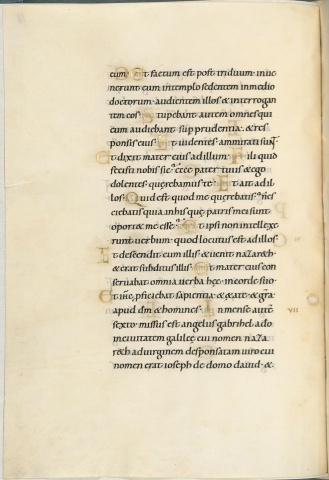 eum Et factum est post triduum inue
nerunt eum intemplo sedentem inmedio
doctorum audientem illos & interrogan
tem eos Stupebant autem omnes qui
eum audiebant sup prudentia & res
ponsis eius Et uidentes ammirati sunt
Et dixit mater eius ad illum Fili quid
fecisti nobis sic ecce pater tuus & ego
dolentes querebamus te Et ait ad il
los Quid est quod me querebatis nes
ciebatis quia inhis que patris mei sunt
oport& me esse Et ipsi non intellexe
runt uerbum quod locutus est ad illos
Et descendit cum illis & uenit nazareth
& erat subditus illis Et mater eius con
seruabat omnia uerba hec incorde suo
Et ihc pficiebat sapientia & etate & gra
apud dm & homines In mense aute
sexto missus est angelus gabrihel a do
VII
inciuitatem galilee cui nomen naza
reth aduirginem desponsatam uiro cui
nomen erat ioseph de domo dauid &